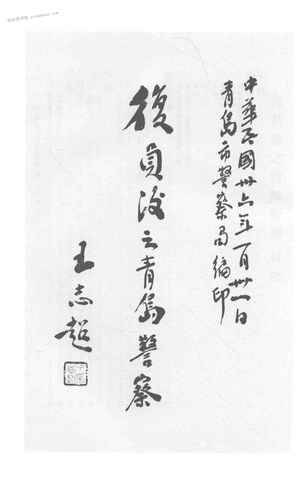 中華民國卅六年一月卅一日
青島市警察局編印
復員後之青島警察
王志超